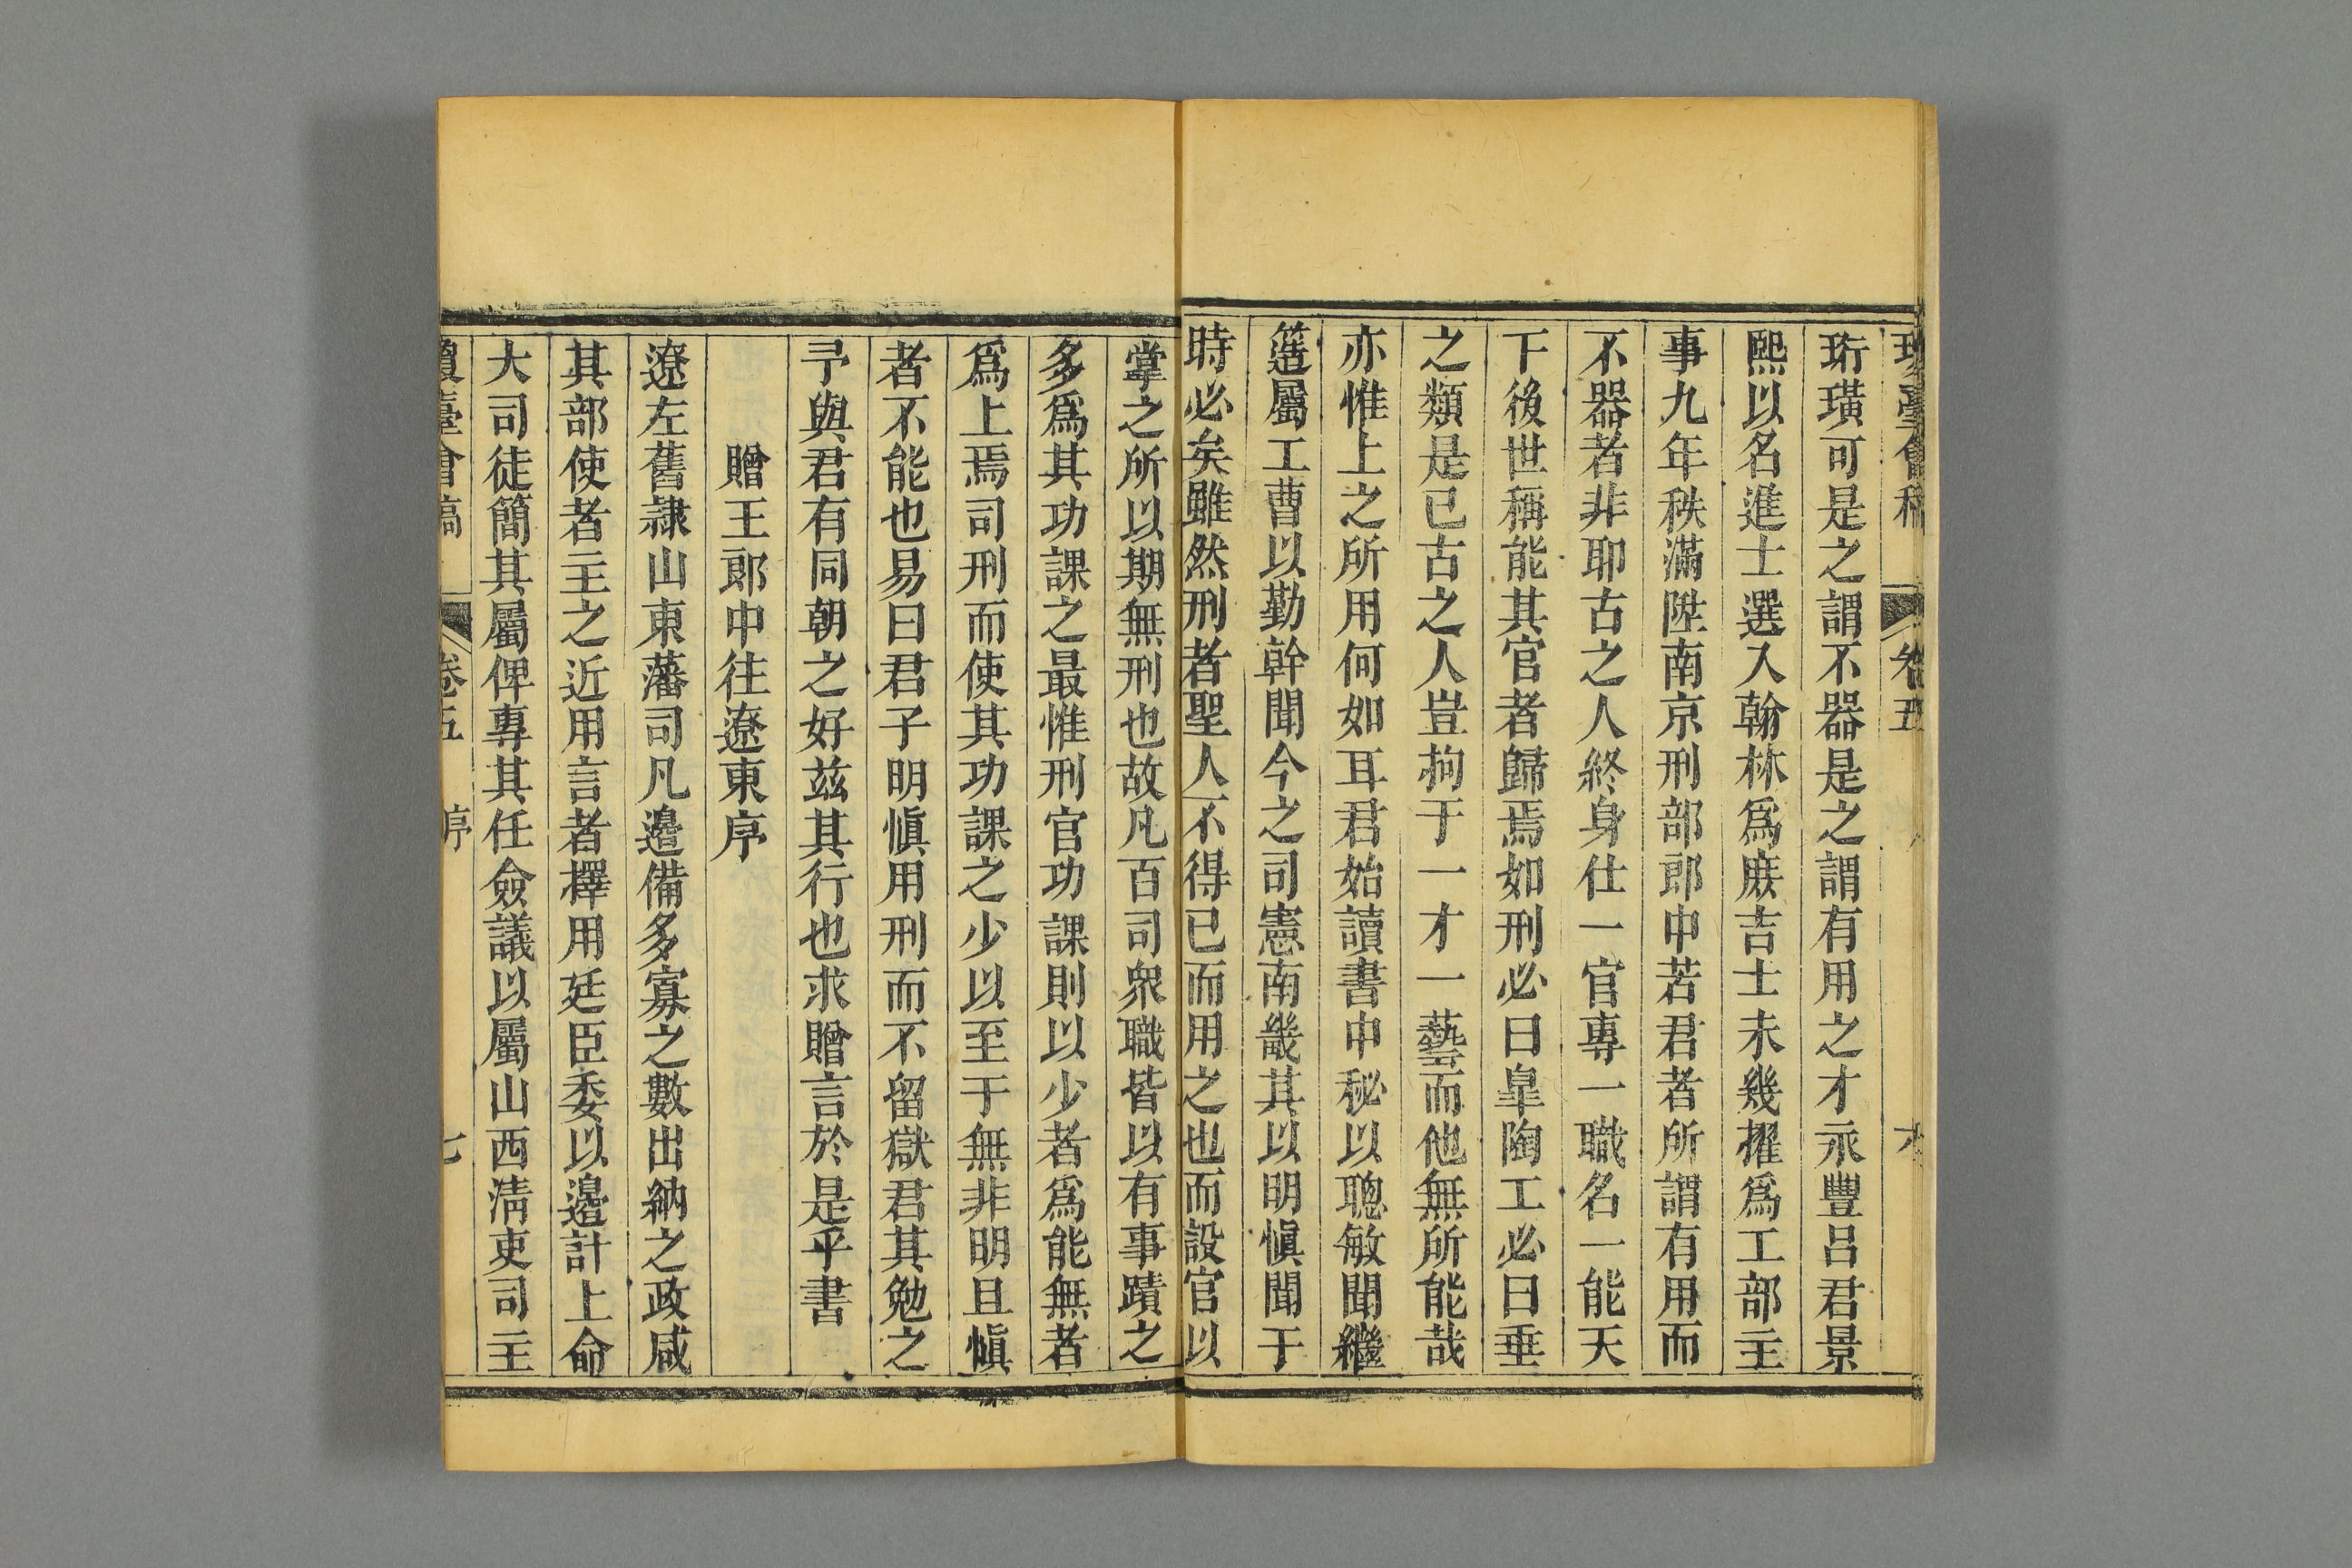 珩璜可是之謂不器是之謂有用之才永豐呂君景
熙以名進士選入翰林爲庶吉士未幾擢爲工部主
事九年秩滿陞南京刑部郎中若君者所謂有用而
不器者非耶古之人終身仕一官專一職名一能天
下後世稱能其官者歸焉如刑必曰臯陶工必曰垂
之類是已古之人豈拘于一才一藝而他無所能哉
亦惟上之所用何如耳君始讀書中秘以聰敏聞繼
簉屬工曹以勤幹聞今之司憲南畿其以明愼聞于
時必矣雖然刑者聖人不得已而用之也而設官以
掌之所以期無刑也故凡百司衆職皆以有事蹟之
多爲其功課之最惟刑官功課則以少者爲能無者
爲上焉司刑而使其功課之少以至于無非明且愼
者不能也易曰君子明愼用刑而不留獄君其勉之
予與君有同朝之好兹其行也求贈言於是乎書
贈王郎中往遼東序
遼左舊隷山東藩司凡邊備多寡之數出納之政咸
其部使者主之近用言者擇用廷臣委以邊計上命
大司徒簡其屬俾專其任僉議以屬山西淸吏司主
瓊臺會稿 卷五 序 七